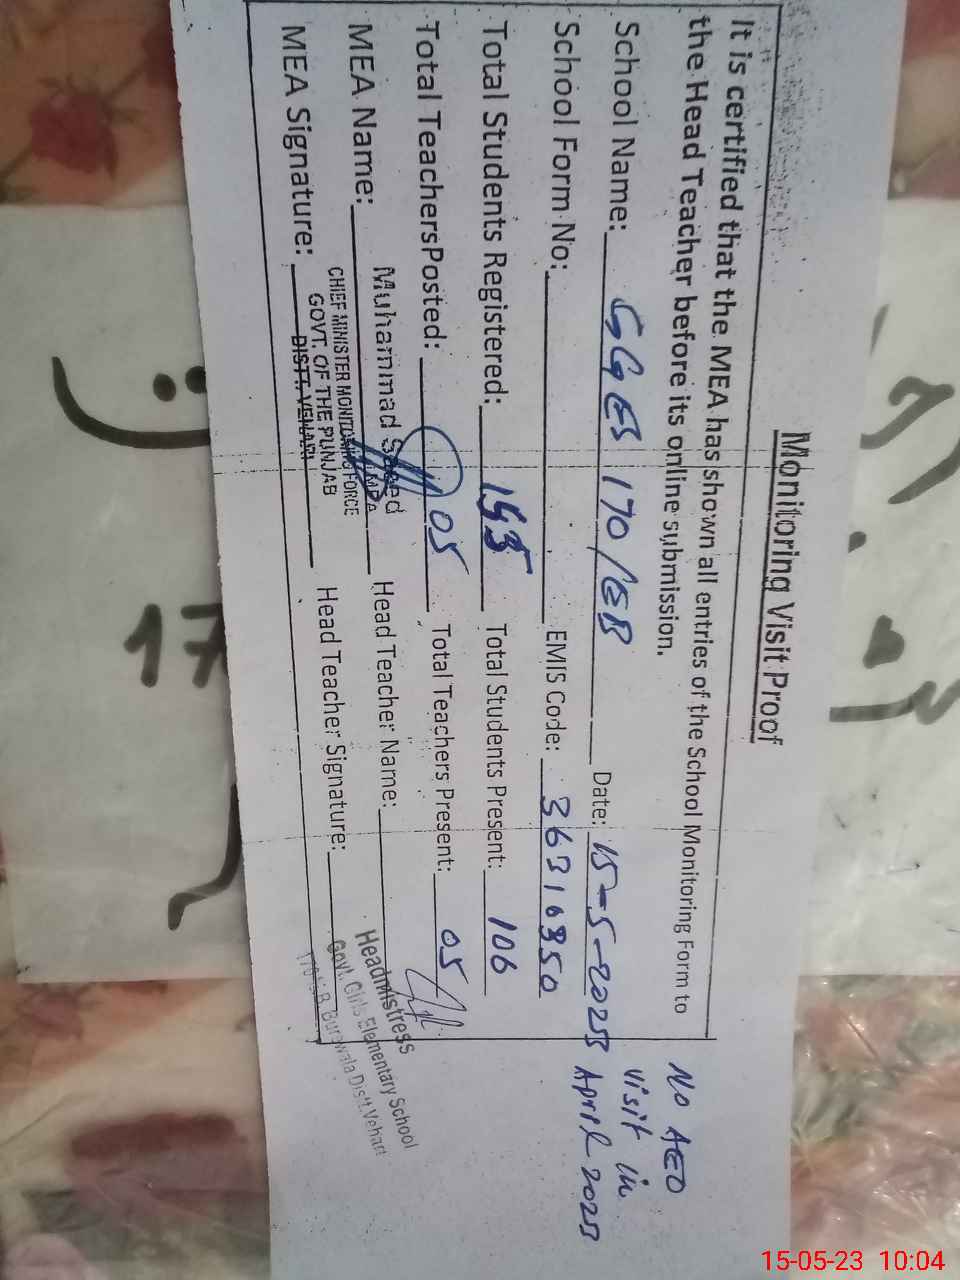 Monitoring Visit Proof
It is certified that the MEA has shown all entries of the School Monitoring Form to
the Head Teacher before its online submission.
School Name: GGES 170/EB Date: 15-5-2023
School Form No: EMIS Code: 36310350
Total Students Registered: Total Students Present: 106
Total TeachersPosted: 05 Total Teachers Present: 05
MEA Name: Muhammad Saeed MEA Head Teacher Name:
CHIEF MINISTER MONITORING FORCE
GOVT. OF THE PUNJAB
DISTT. VEHARI
MEA Signature: Head Teacher Signature:
Headmistress
Govt. Girls Elementary School
170 E.B. Burewala Distt. Vehari
No AEO
visit in
April 2023
17
15-05-23 10:04